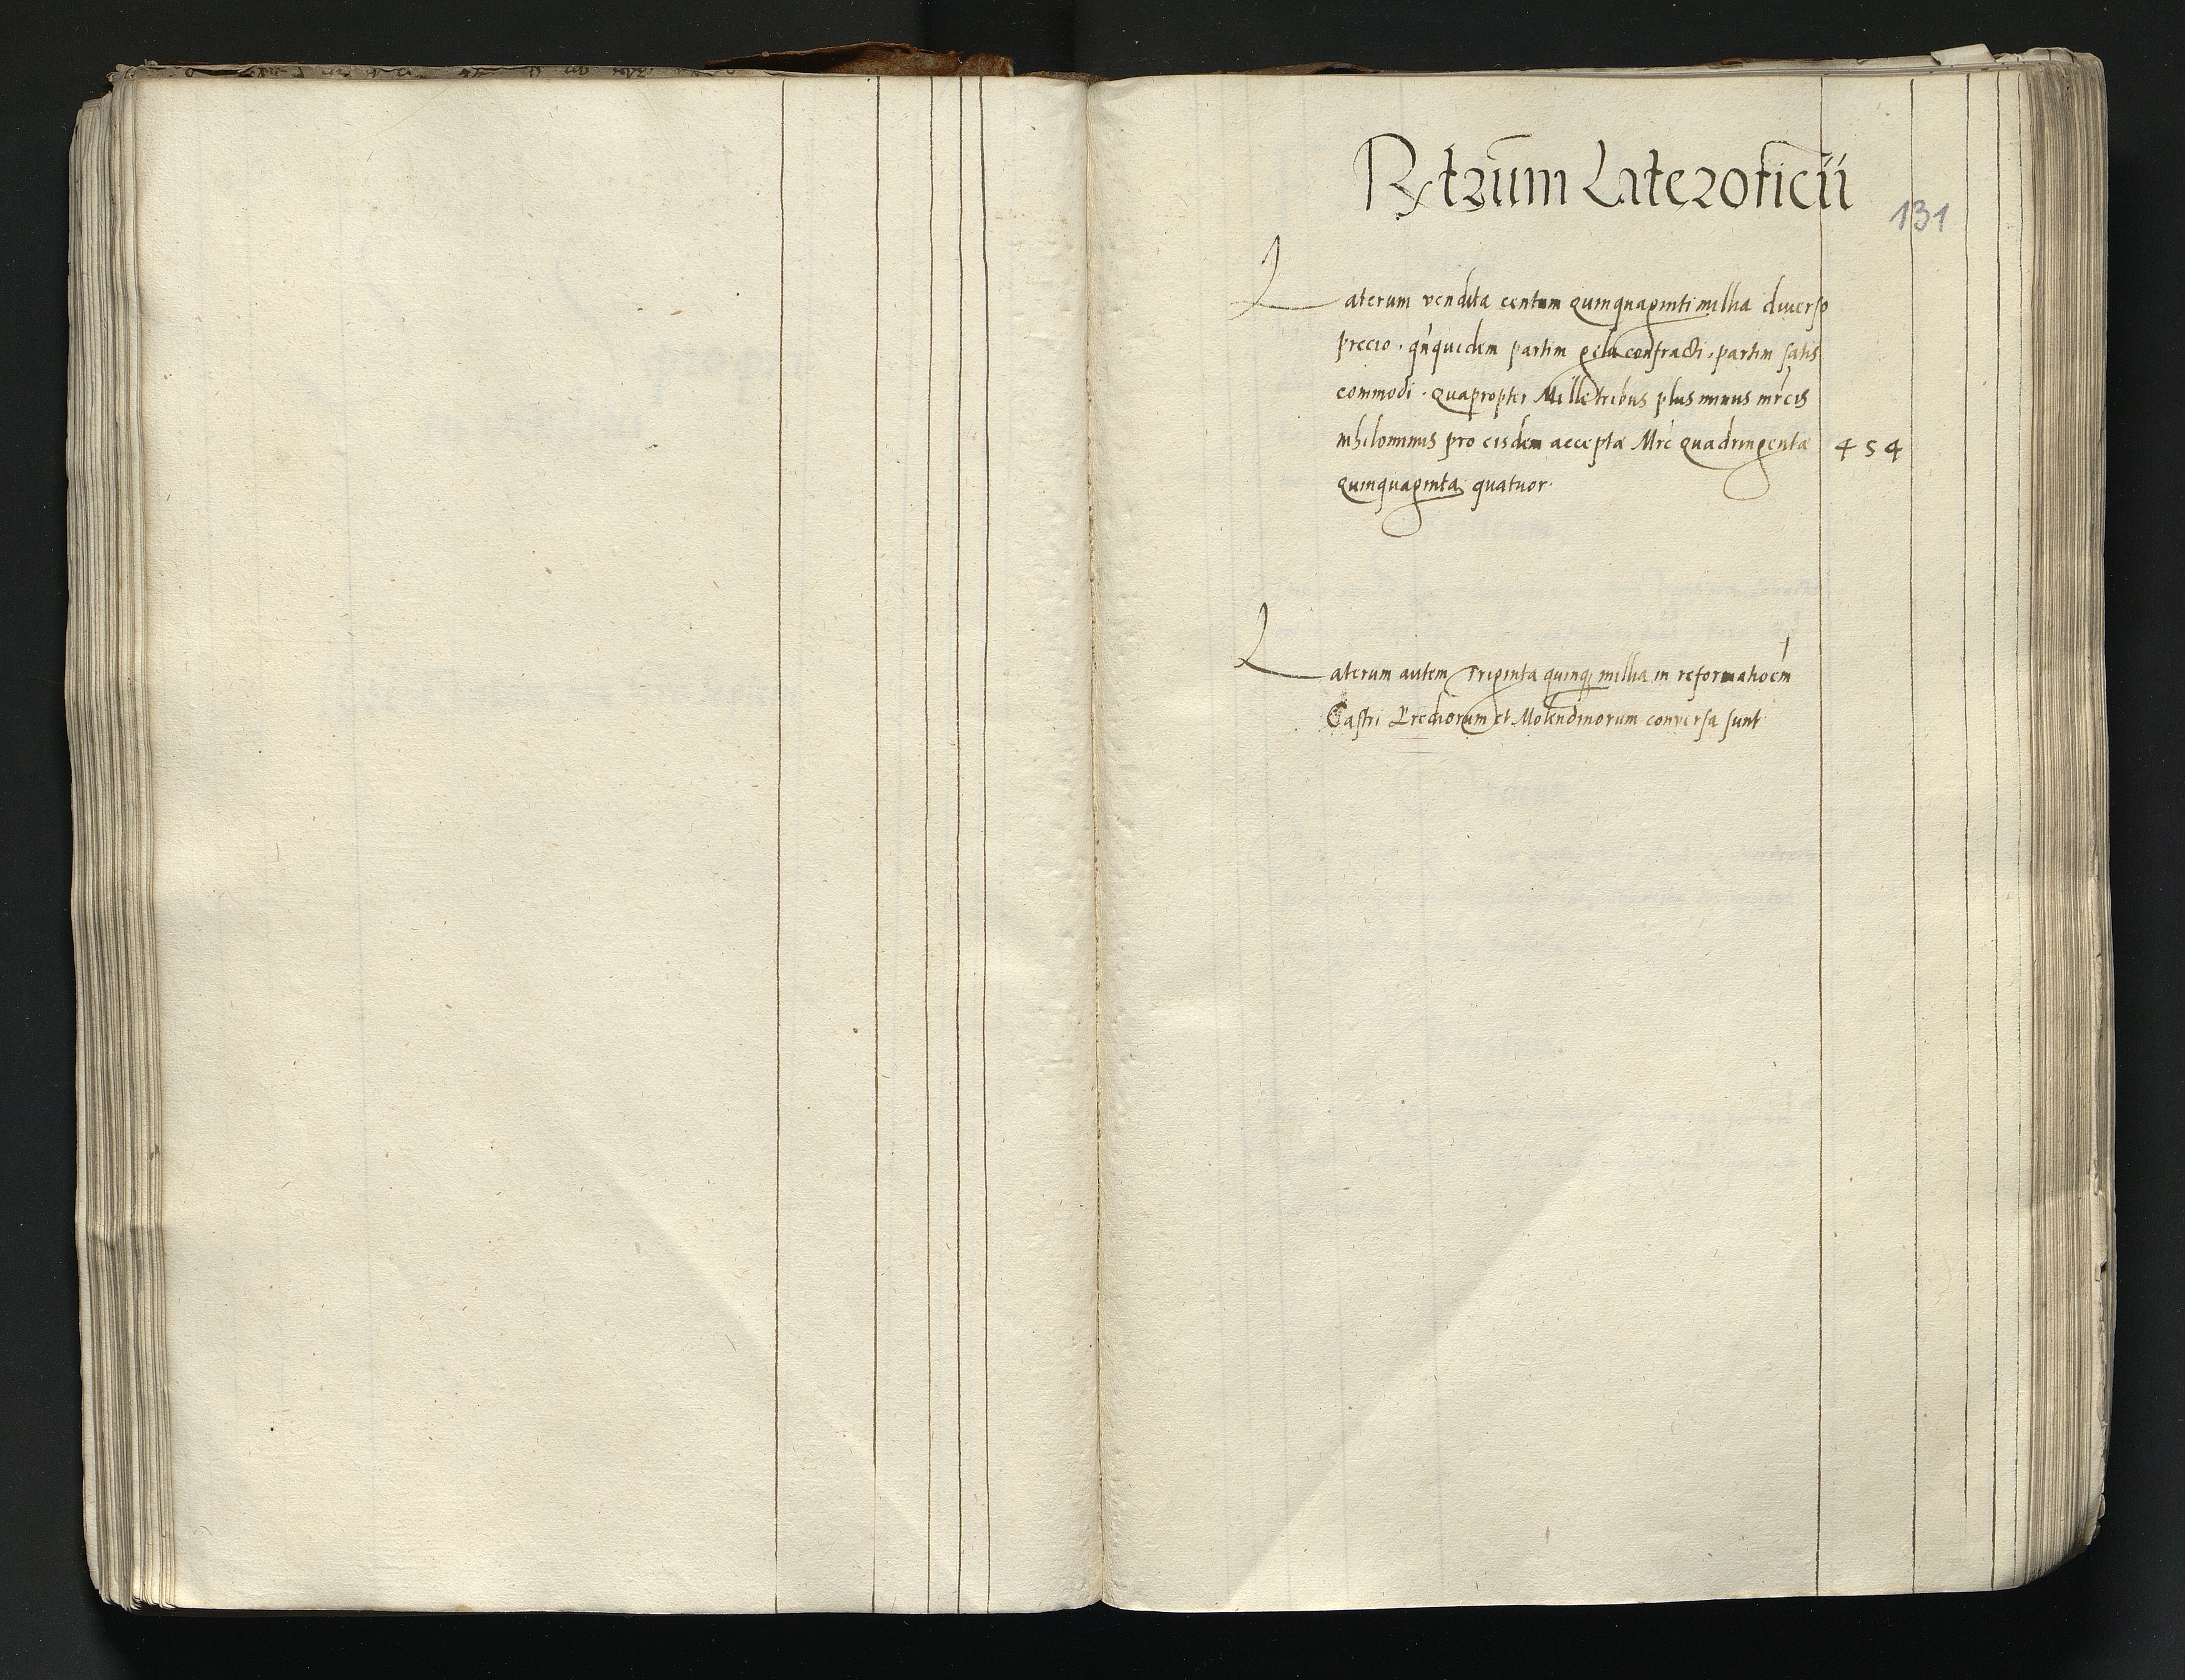 Rxtrum Lateroficii
131
Laterum vendita centum quinquaginti millia diverso
precio. qn̄quidem partim gelu confracti. partim satis
commodi. quapropter Mille tribus plus minus mrcis
nhilominus pro eisdem acceptæ Mrc quadringentæ 454
quinquaginta quatuor.
Laterum autem Triginta quinq millia in reformatioēm
Castri Prediorum et Molendinorum conversa sunt